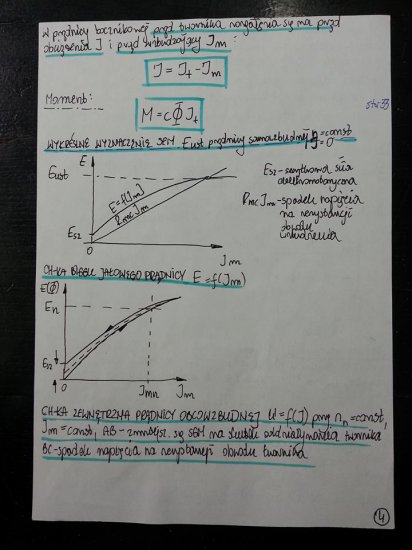 W prądnicy bocznikowej prąd twornika rozgałęzia się na prąd
obciążenia I i prąd wzbudzający Im:
I = It - Im
Moment:
M = cΦIt
str 33
WYKREŚLNE WYZNACZENIE SEM Eust prądnicy samowzbudnej n = const
I = 0
E
Eust
E=f(Im)
Rmc Im
Esz
0
Im
Esz - szczątkowa siła
elektromotoryczna
Rmc Im - spadek napięcia
na rezystancji
obwodu
wzbudzenia
CH-KA BIEGU JAŁOWEGO PRĄDNICY E = f(Im)
E(Φ)
En
Esz
0
Imn
Im
CH-KA ZEWNĘTRZNA PRĄDNICY OBCOWZBUDNEJ U = f(I) przy nn = const,
Im = const, AB - zmniejsz. się SEM na skutek oddziaływania twornika
BC - spadek napięcia na rezystancji obwodu twornika
4